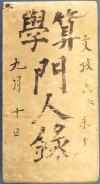 文政六癸未
算學門人録
九月十日